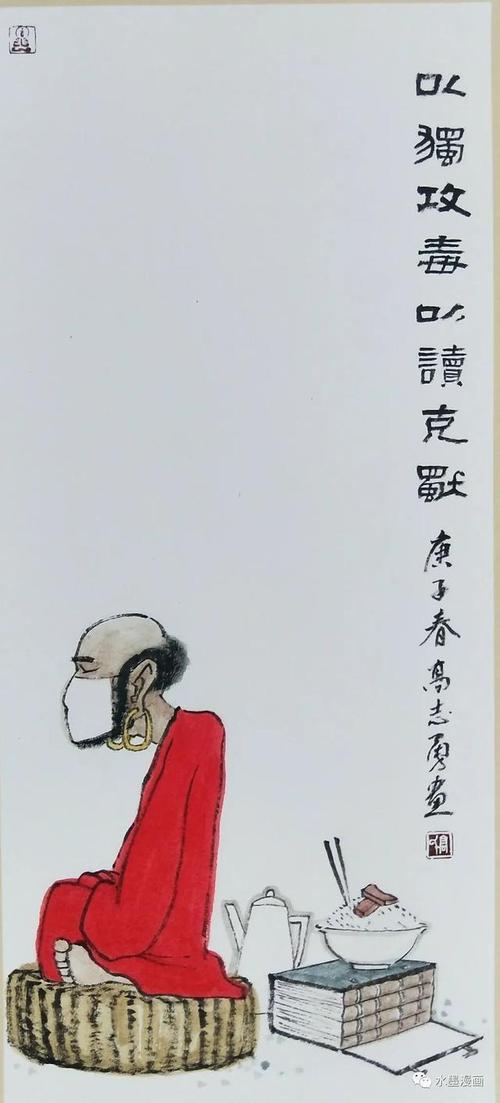 以獨攻毒以讀克獨
庚子春高志勇畫
水墨漫画